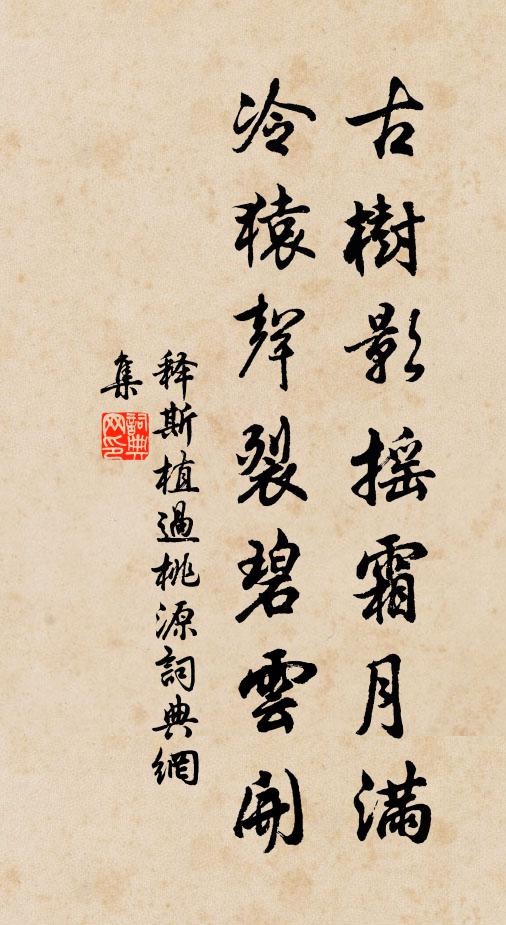 古樹影搖霜月滿
冷猿聲裂碧雲開
释斯植過桃源詞典網
集
詞典网印